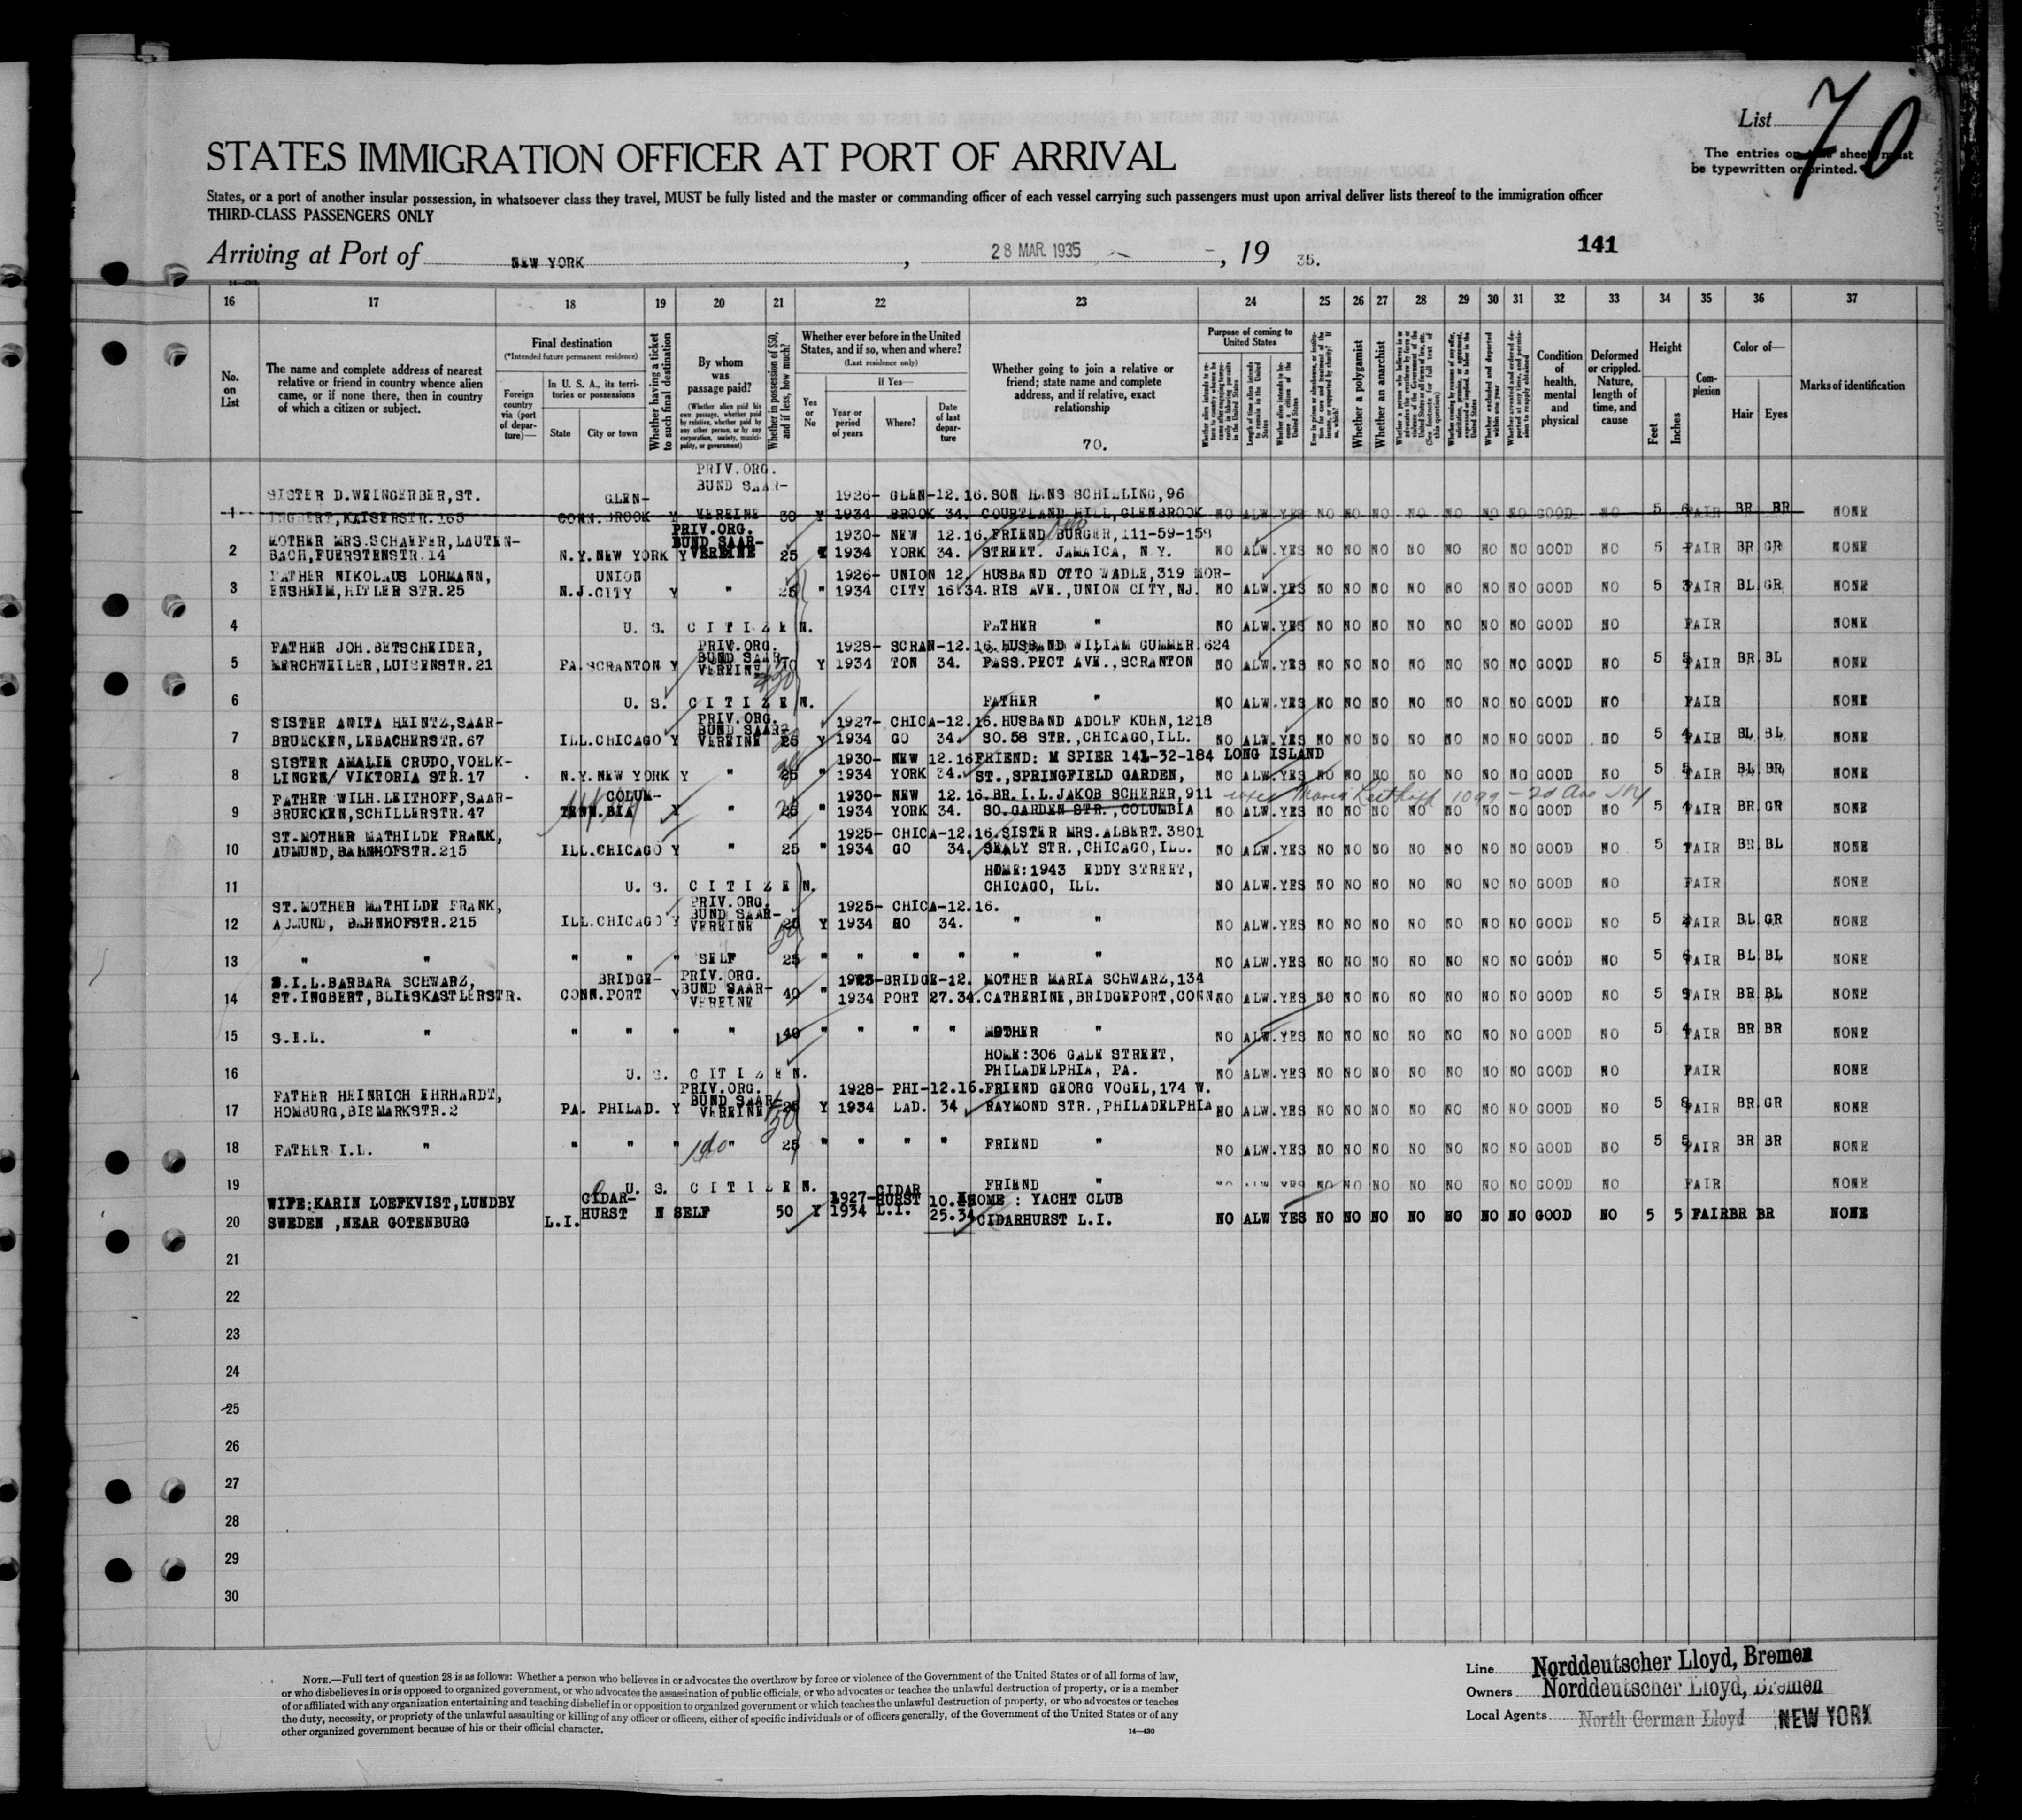 List 70
The entries on this sheet must
be typewritten or printed.
STATES IMMIGRATION OFFICER AT PORT OF ARRIVAL
States, or a port of another insular possession, in whatsoever class they travel, MUST be fully listed and the master or commanding officer of each vessel carrying such passengers must upon arrival deliver lists thereof to the immigration officer
THIRD-CLASS PASSENGERS ONLY
Arriving at Port of NEW YORK, 28 MAR. 1935, 19 35. 141
16 17 18 19 20 21 22 23 24 25 26 27 28 29 30 31 32 33 34 35 36 37
No. on List
The name and complete address of nearest relative or friend in country whence alien came, or if none there, then in country of which a citizen or subject.
Final destination
(*Intended future permanent residence)
Foreign country via (port of departure)—
In U. S. A., its territories or possessions
State City or town
Whether having a ticket to such final destination
By whom was passage paid?
(Whether alien paid his own passage, whether paid by relative, whether paid by any other person, or by any corporation, society, municipality, or government)
Whether in possession of $50, and if less, how much?
Whether ever before in the United States, and if so, when and where?
(Last residence only)
Yes or No
If Yes—
Year or period of years Where? Date of last departure
Whether going to join a relative or friend; state name and complete address, and if relative, exact relationship
70.
Purpose of coming to United States
Whether a polygamist
Whether an anarchist
Condition of health, mental and physical
Deformed or crippled. Nature, length of time, and cause
Height
Feet Inches
Complexion
Color of—
Hair Eyes
Marks of identification
PRIV.ORG.
BUND SAAR-
SISTER D.WEINGERBER,ST. GLEN- 1926- GLEN-12.16.SON HANS SCHILLING,96
1 INGBERT,KAISERSTR.165 CONN.BROOK Y VEREINE 30 Y 1934 BROOK 34. COURTLAND HILL,GLENBROOK NO ALW.YES NO NO NO NO NO NO NO GOOD NO 5 FAIR BR BR NONE
PRIV.ORG.
MOTHER MRS.SCHAEFER,LAUTEN- BUND SAAR- 1930- NEW 12.16.FRIEND BURGER,111-59-158
2 BACH,FUERSTENSTR.14 N.Y.NEW YORK Y VEREINE 25 Y 1934 YORK 34. STREET. JAMAICA, N.Y. NO ALW.YES NO NO NO NO NO NO NO GOOD NO 5 FAIR BR GR NONE
FATHER NIKOLAUS LOHMANN, UNION 1926- UNION 12. HUSBAND OTTO WADLE,319 MOR-
3 ENSHEIM,HITLER STR.25 N.J.CITY Y " 25 " 1934 CITY 16.34.RIS AVE.,UNION CITY,NJ. NO ALW.YES NO NO NO NO NO NO NO GOOD NO 5 3 FAIR BL GR NONE
4 U. S. CITIZEN. FATHER " NO ALW.YES NO NO NO NO NO NO NO GOOD NO FAIR NONE
FATHER JOH.BETSCHEIDER, PRIV.ORG. 1928- SCRAN-12.16.HUSBAND WILIAM GUMMER.624
BUND SAAR-
5 MERCHWEILER,LUISENSTR.21 PA.SCRANTON Y VEREINE Y 1934 TON 34. PASS.PECT AVE.,SCRANTON NO ALW.YES NO NO NO NO NO NO NO GOOD NO 5 5 FAIR BR BL NONE
6 U. S. CITIZEN. FATHER " NO ALW.YES NO NO NO NO NO NO NO GOOD NO FAIR NONE
PRIV.ORG.
SISTER ANITA HEINTZ,SAAR- BUND SAAR- 1927- CHICA-12.16.HUSBAND ADOLF KUHN,1218
7 BRUECKEN,LEBACHERSTR.67 ILL.CHICAGO Y VEREINE 25 Y 1934 GO 34. SO.58 STR.,CHICAGO,ILL. NO ALW.YES NO NO NO NO NO NO NO GOOD NO 5 4 FAIR BL BL NONE
SISTER AMALIE CRUDO,VOELK- 1930- NEW 12.16FRIEND: M SPIER 141-32-184 LONG ISLAND
8 LINGEN/ VIKTORIA STR.17 N.Y.NEW YORK Y " 25 " 1934 YORK 34. ST.,SPRINGFIELD GARDEN, NO ALW.YES NO NO NO NO NO NO NO GOOD NO 5 5 FAIR BL BR NONE
FATHER WILH.LEITHOFF,SAAR- COLUM- 1930- NEW 12.16.BR.I.L.JAKOB SCHERER,911 Maria Leithoff 1099 - 2d Ave NY
9 BRUECKEN,SCHILLERSTR.47 TENN.BIA Y " 25 " 1934 YORK 34. SO.GARDEN STR.,COLUMBIA NO ALW.YES NO NO NO NO NO NO NO GOOD NO 5 4 FAIR BR GR NONE
ST.MOTHER MATHILDE FRANK, 1925- CHICA-12.16.SISTER MRS.ALBERT.3801
10 AUMUND,BAHNHOFSTR.215 ILL.CHICAGO Y " 25 " 1934 GO 34. SEALY STR.,CHICAGO,ILL. NO ALW.YES NO NO NO NO NO NO NO GOOD NO 5 FAIR BR BL NONE
HOME:1943 EDDY STREET,
11 U. S. CITIZEN. CHICAGO, ILL. NO ALW.YES NO NO NO NO NO NO NO GOOD NO FAIR NONE
PRIV.ORG.
ST.MOTHER MATHILDE FRANK, BUND SAAR- 1925- CHICA-12.16.
12 AUMUND, BAHNHOFSTR.215 ILL.CHICAGO Y VEREINE 25 Y 1934 GO 34. " " NO ALW.YES NO NO NO NO NO NO NO GOOD NO 5 FAIR BL GR NONE
13 " " " " " SELF 25 " " " " " " NO ALW.YES NO NO NO NO NO NO NO GOOD NO 5 6 FAIR BL BL NONE
S.I.L.BARBARA SCHWARZ, BRIDGE- PRIV.ORG. 1923-BRIDGE-12. MOTHER MARIA SCHWARZ,134
BUND SAAR-
14 ST.INGBERT,BLIESKASTLERSTR. CONN.PORT Y VEREINE 40 " 1934 PORT 27.34.CATHERINE,BRIDGEPORT,CONN NO ALW.YES NO NO NO NO NO NO NO GOOD NO 5 9 FAIR BR BL NONE
15 S.I.L. " " " " " 40 " " " " MOTHER " NO ALW.YES NO NO NO NO NO NO NO GOOD NO 5 4 FAIR BR BR NONE
HOME:306 GALE STREET,
16 U. S. CITIZEN. PHILADELPHIA, PA. NO ALW.YES NO NO NO NO NO NO NO GOOD NO FAIR NONE
PRIV.ORG.
FATHER HEINRICH EHRHARDT, BUND SAAR- 1928- PHI-12.16.FRIEND GEORG VOGEL,174 W.
17 HOMBURG,BISMARKSTR.2 PA. PHILAD. Y VEREINE 25 Y 1934 LAD. 34 RAYMOND STR.,PHILADELPHIA NO ALW.YES NO NO NO NO NO NO NO GOOD NO 5 8 FAIR BR GR NONE
18 FATHER I.L. " " " " " 25 " " " " FRIEND " NO ALW.YES NO NO NO NO NO NO NO GOOD NO 5 5 FAIR BR BR NONE
19 U. S. CITIZEN. FRIEND " NO ALW YES NO NO NO NO NO NO NO GOOD NO FAIR NONE
WIFE:KARIN LOEFKVIST,LUNDBY CIDAR- 1927- CIDAR HURST 10. HOME : YACHT CLUB
20 SWEDEN ,NEAR GOTENBURG L.I. HURST N SELF 50 Y 1934 L.I. 25.34 CIDARHURST L.I. NO ALW YES NO NO NO NO NO NO NO GOOD NO 5 5 FAIR BR BR NONE
21
22
23
24
25
26
27
28
29
30
NOTE.—Full text of question 28 is as follows: Whether a person who believes in or advocates the overthrow by force or violence of the Government of the United States or of all forms of law,
or who disbelieves in or is opposed to organized government, or who advocates the assassination of public officials, or who advocates or teaches the unlawful destruction of property, or is a member
of or affiliated with any organization entertaining and teaching disbelief in or opposition to organized government or which teaches the unlawful destruction of property, or who advocates or teaches
the duty, necessity, or propriety of the unlawful assaulting or killing of any officer or officers, either of specific individuals or of officers generally, of the Government of the United States or of any
other organized government because of his or their official character. 14—430
Line Norddeutscher Lloyd, Bremen
Owners Norddeutscher Lloyd, Bremen
Local Agents North German Lloyd NEW YORK